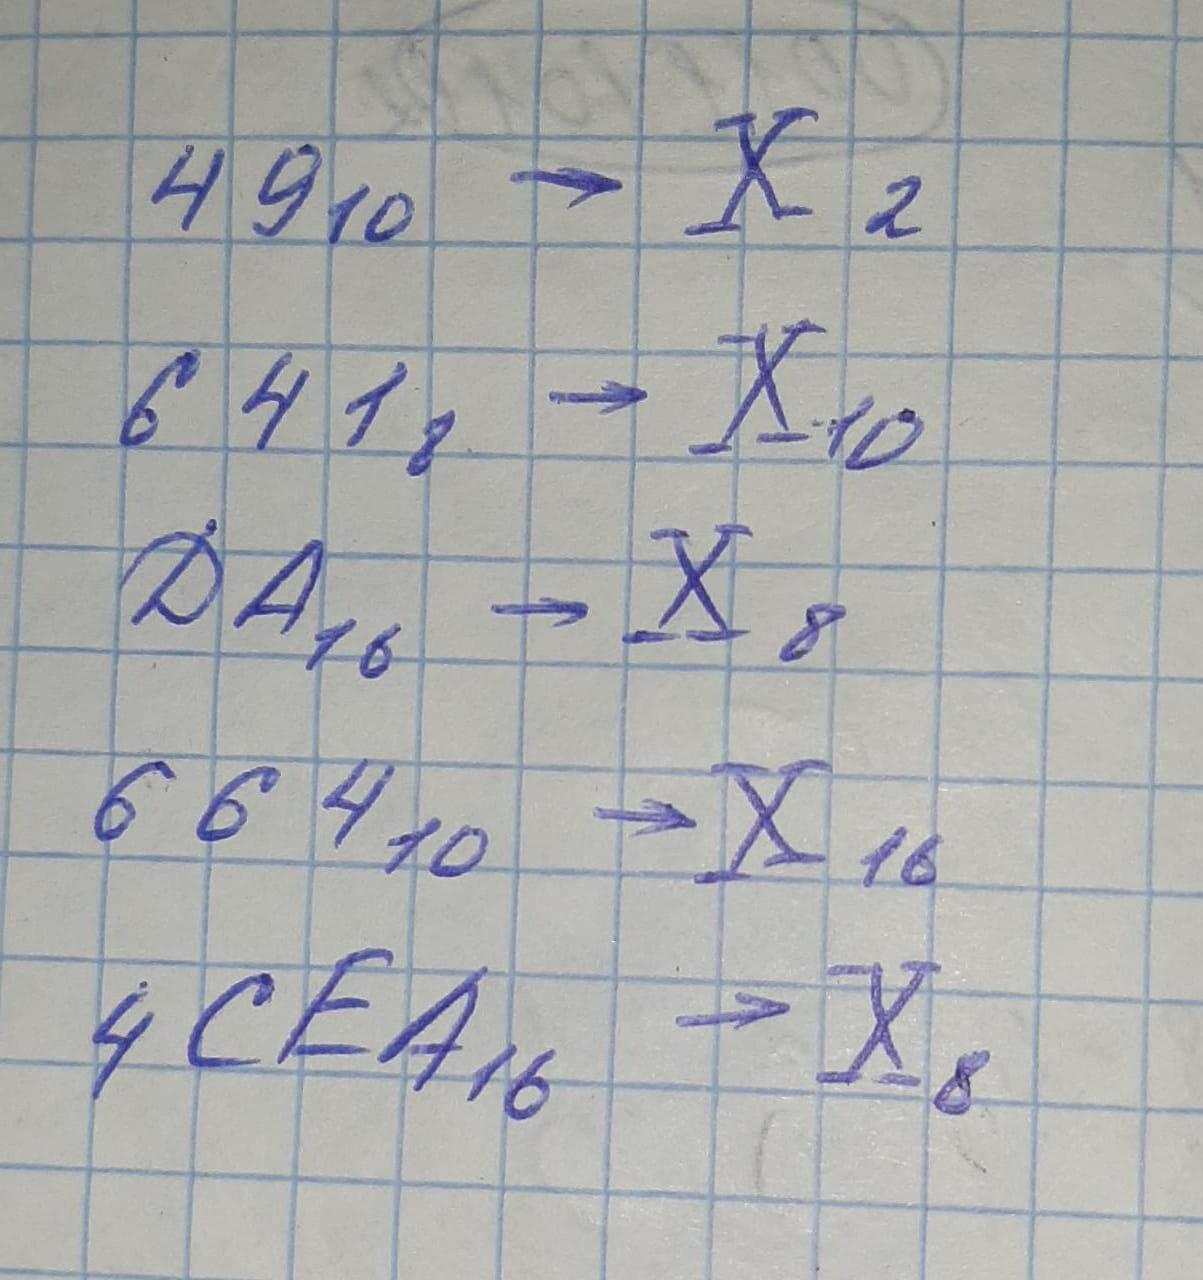 49₁₀ → X₂
641₈ → X₁₀
DA₁₆ → X₈
664₁₀ → X₁₆
4CEA₁₆ → X₈